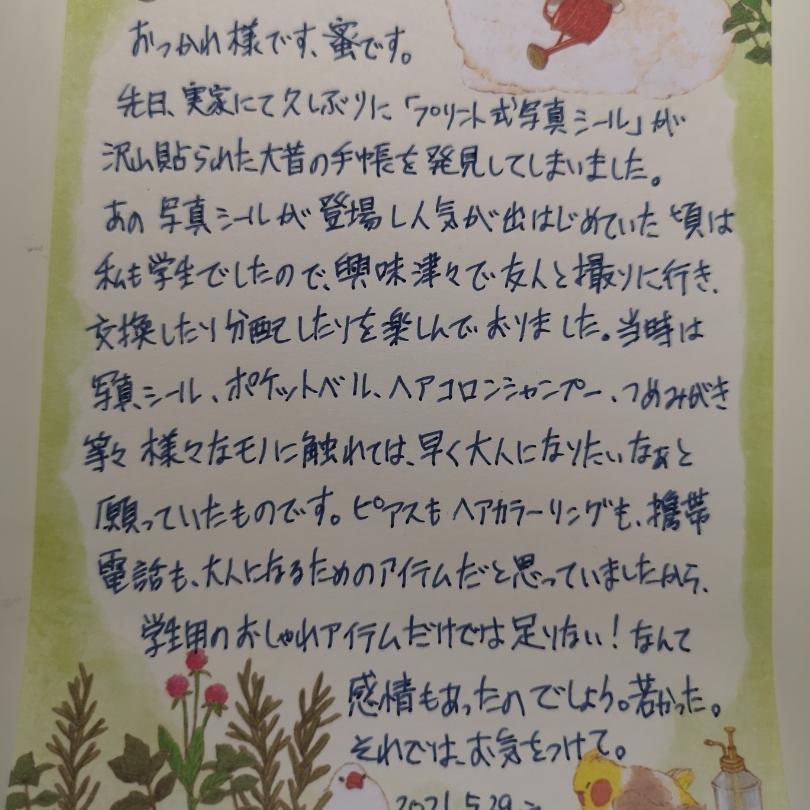 おつかれ様です、蜜です。
先日、実家にて久しぶりに「プリント式写真シール」が
沢山貼られた大昔の手帳を発見してしまいました。
あの写真シールが登場し人気が出はじめていた頃は
私も学生でしたので、興味津々で友人と撮りに行き、
交換したり分配したりを楽しんでおりました。当時は
写真シール、ポケットベル、ヘアコロンシャンプー、つめみがき
等々様々なモノに触れては、早く大人になりたいなぁと
願っていたものです。ピアスもヘアカラーリングも、携帯
電話も、大人になるためのアイテムだと思っていましたから、
学生用のおしゃれアイテムだけでは足りない！なんて
感情もあったのでしょう。若かった。
それでは、お気をつけて。
2021.5.29